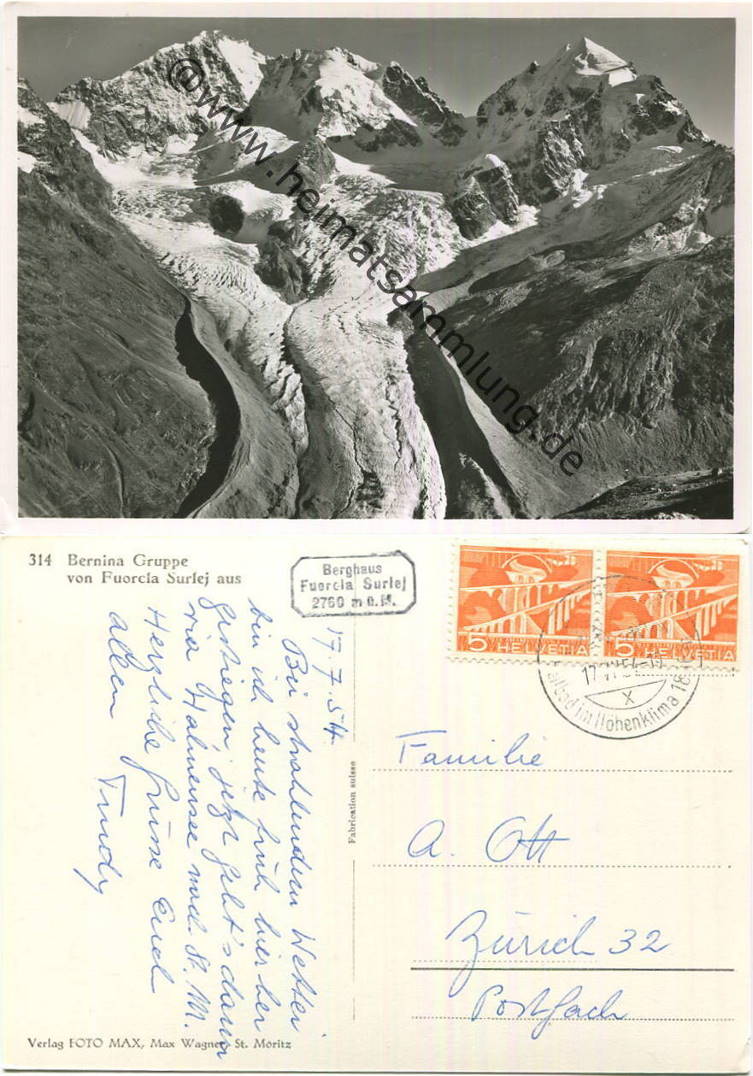 @ www.heimatsammlung.de
314 Bernina Gruppe
von Fuorcla Surlej aus
Berghaus
Fuorcla Surlej
2760 m ü. M.
5 HELVETIA
5 HELVETIA
17. VII 54
X
im Höhenklima 18
17.7.54.
Bei strahlendem Wetter
bin ich heute früh hier her
gestiegen, jetzt geht's dann
via Hahnensee nach St. M.
Herzliche Grüsse Euch
allen Trudy
Fabrication suisse
Familie
A. Ott
Zürich 32
Postfach
Verlag FOTO MAX, Max Wagner, St. Moritz